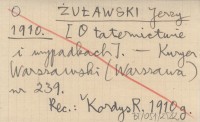 O ŻUŁAWSKI Jerzy
1910. [O taternictwie
i wypadkach]. — Kuryer
Warszawski (Warszawa)
nr 239.
Rec.: Kordys R. 1910 g